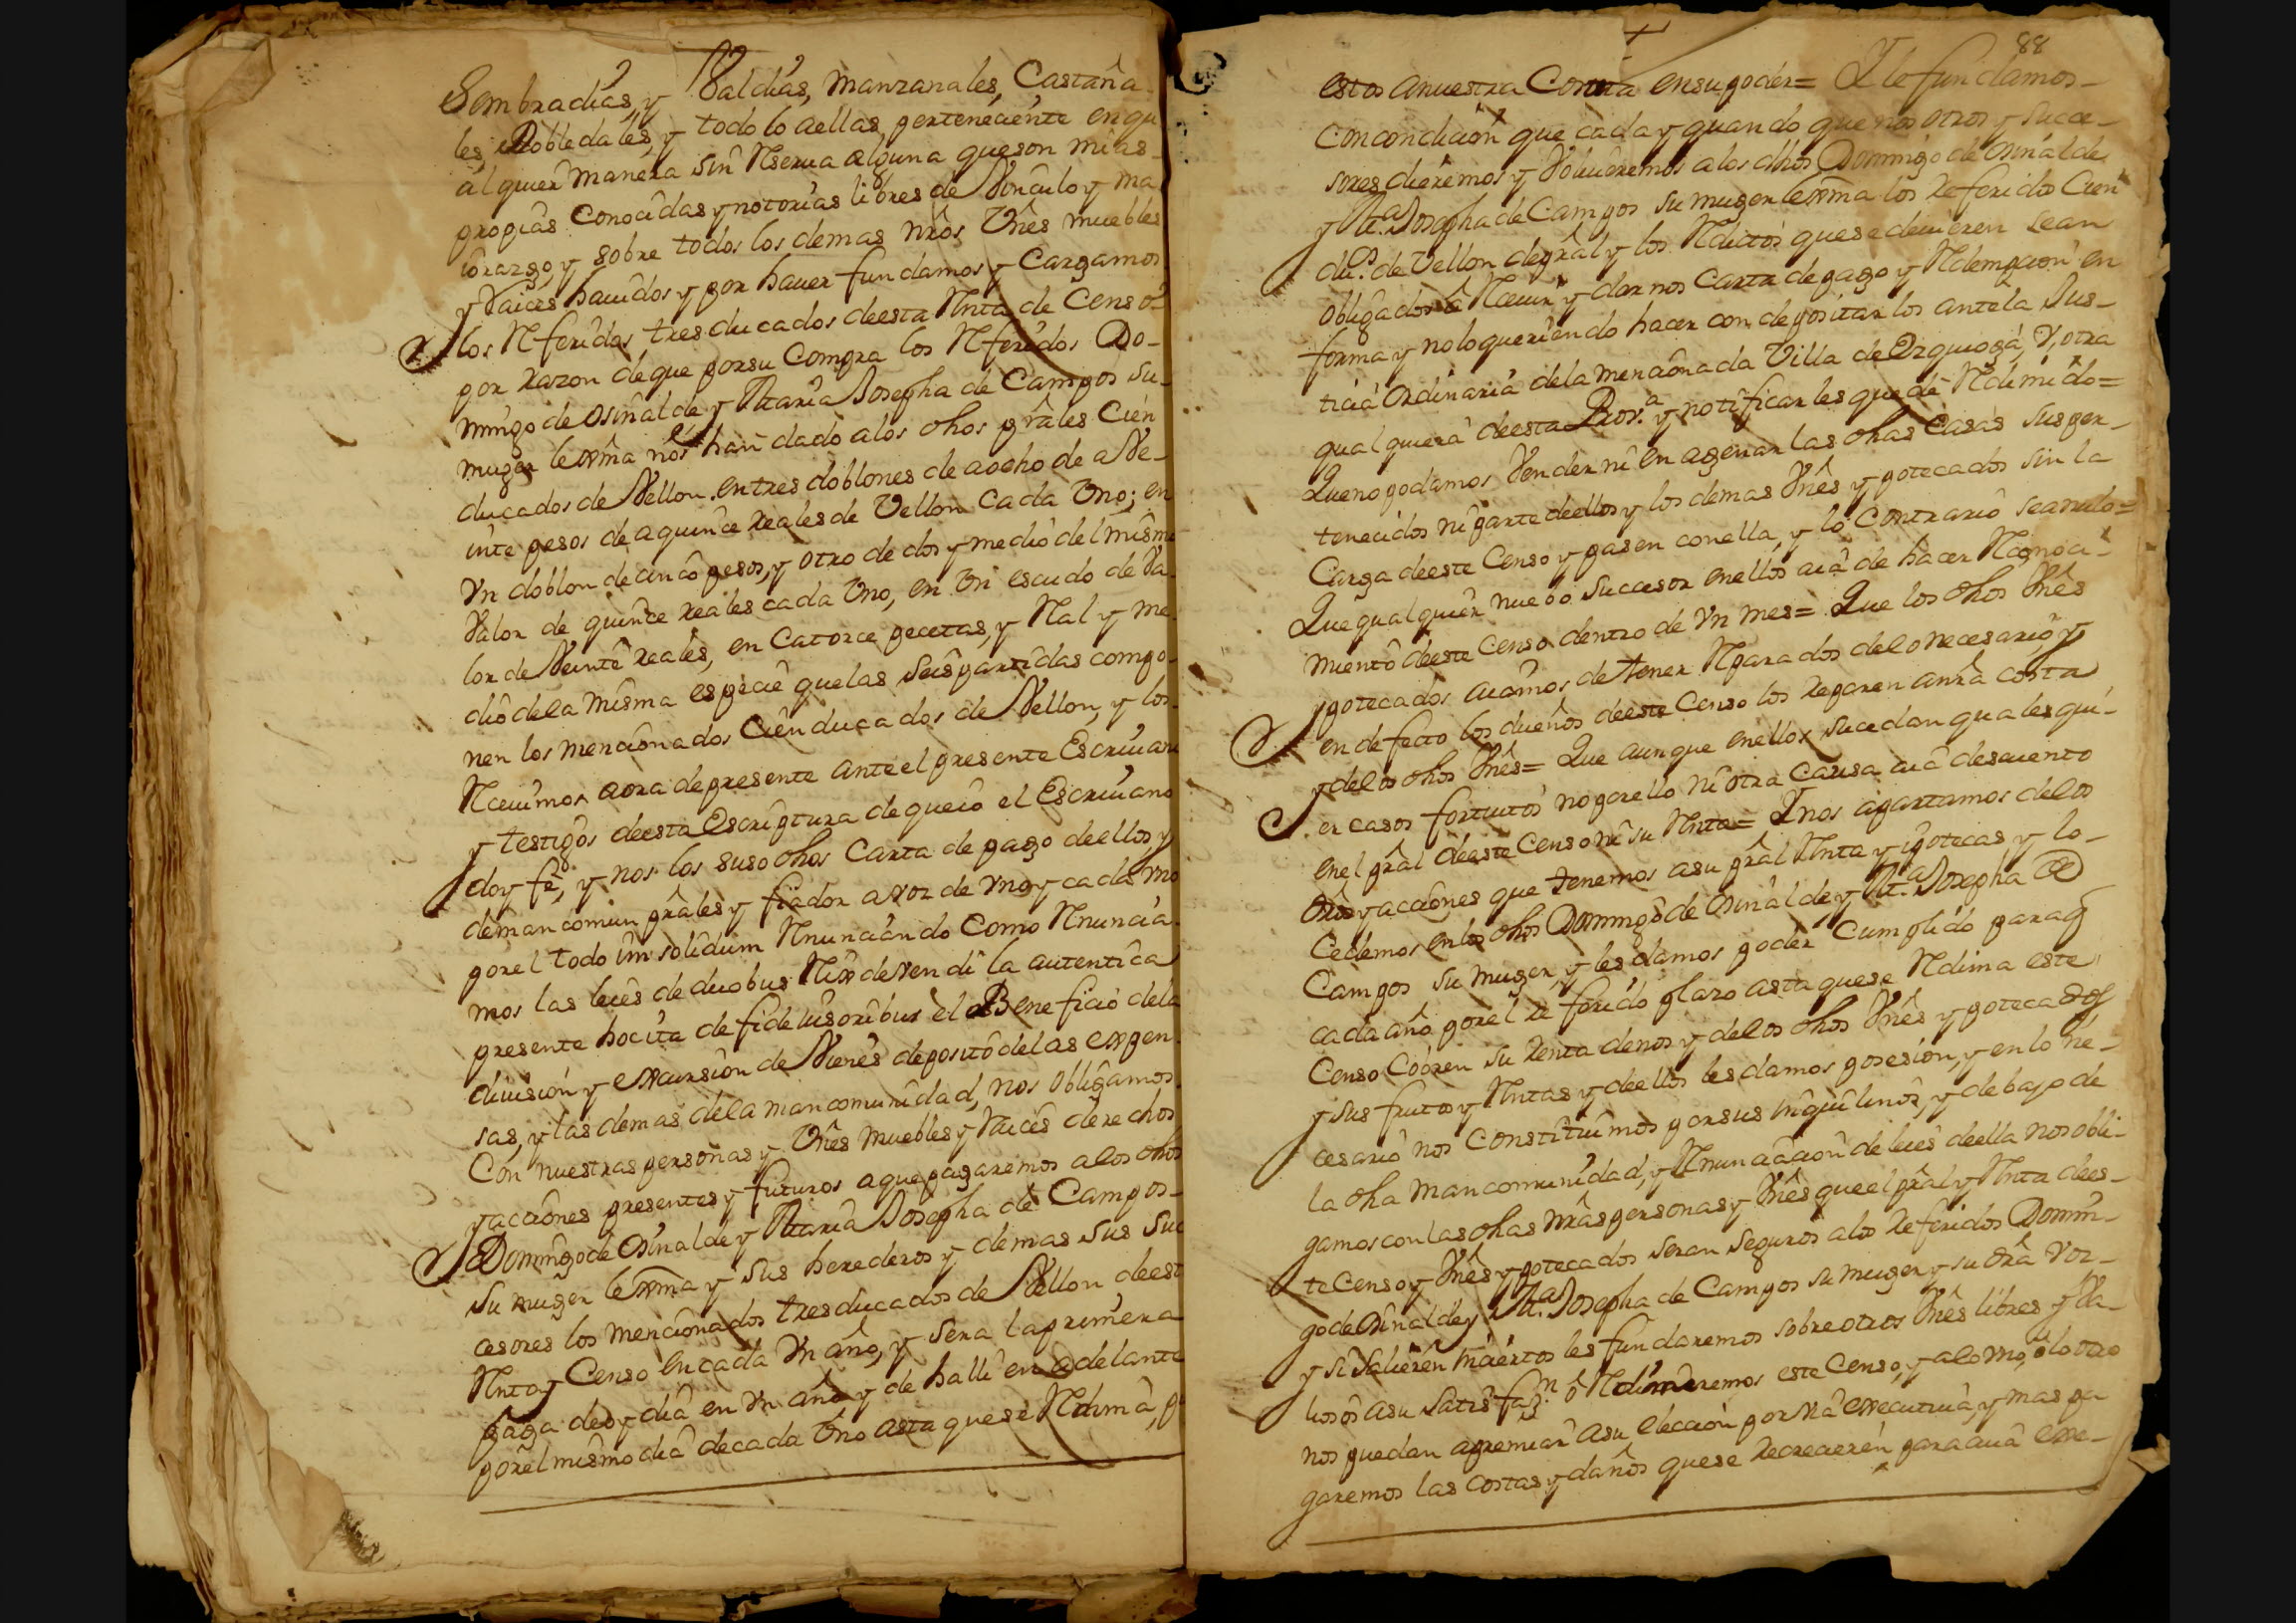 Sembradias, y Valdias, Manzanales, Castaña-
les, Robledales, y todo lo aellas perteneciente enqu
alquier manera sin Reserua alguna queson mias
propias Conocidas y notorias libres de Vinculo y ma
iorazgo, y sobre todos los demas nros Vnes muebles
y Raices hauidos y por hauer fundamos y Cargamos
los Referidos tres ducados deesta Renta de Censo
por razon deque porsu Compra los Referidos Do-
mingo de Osinalde y Maria Josepha de Campos su
muger lexma nos han dado alos dhos prales Cien
ducados de Vellon entres doblones de aocho de aVe-
inte pesos de aquince reales de Vellon Cada Vno; en
Vn doblon de cinco pesos, y otro de dos y medio del mismo
Valor de quince reales cada Vno, en Vn escudo de Va-
lor de Veinte reales, en Catorce pecetas, y Real y me-
dio dela misma especie quelas seis partidas compo-
nen los mencionados Cien ducados de Vellon, y los
Receuimos aora depresente anteel presente Escriuano
y testigos deesta Escriptura dequeio el Escriuano
doy fe, y nos los suso dhos Carta de pago deellos y
demancomun prales y fiador avoz de vno y cada vno
porel todo in solidum Renunciando Como Renuncia-
mos las leies de duobus Rex devendi la autentica
presente hocita de fideiusoribus el Beneficio dela
diuision y excursion de Vienes deposito delas expen-
sas, y las demas dela mancomunidad, nos obligamos
Con nuestras personas y Vnes muebles y Raices derechos
y acciones presentes y futuros aque pagaremos alos dhos
Domingo de Osinalde y Maria Josepha de Campos
su muger lexma y sus herederos y demas sus suc
cesores los mencionados tres ducados de Vellon deesta
Renta y Censo encada Vn año, y sera laprimera
paga deoy dia en Vn año, y de halli en adelante
porel mismo dia decada Vno asta quese Redima, p
88
estos anuestra Costa ensupoder= Y le fundamos
Concondicion que cada y quando que nosotros y succe-
sores dieremos y Voluieremos alos dhos Domingo de Osinalde
y Ma. Josepha de Campos su muger lexma los referidos Cien
du.s de Vellon depral y los Reditos quese deuieren sean
obligados a Receuir y darnos Carta depago y Redempcion en
forma y noloqueriendo hacer con depositarlos antela Jus-
ticia Ordinaria dela mencionada Villa de Vrquioga, Y, otra
qualquiera deesta Prov.a y notificarles queda Redimido=
Queno podamos Vender ni enagenar las dhas Casas susper-
tenecidos ni parte deellos y los demas Vnes ypotecados sin la
Carga deeste Censo y pasen conella, y lo Contrario seanulo=
Que qualquier nuebo successor enellos aia de hacer Reconoci-
miento deeste Censo dentro de Vn mes= Que los dhos Vnes
ypotecados aiamos de tener Reparados delo necesario, y
en defecto los dueños deeste Censo los reparen anra costa
y delos dhos Vnes= Que aunque enellos sucedan qualesqui-
er casos fortuitos no porello ni otra Causa aia descuento
enel pral deeste Censo ni su Renta= Y nos apartamos delos
dros y acciones que tenemos asu pral Renta y ipotecas y lo
Cedemos enlos dhos Domingo de Osinalde y Ma. Josepha de
Campos su muger, y les damos poder Cumplido paraq
cada año porel referido plazo asta quese Redima este
Censo Cobren su renta denos y delos dhos Vnes ypotecados
y sus frutos y Rentas y deellos les damos posesion, y en lo ne-
cesario nos Constituimos porsus inquilinos, y debajo de
la dha mancomunidad, y Renunciacion de leies deella nosobli-
gamos con las dhas nras personas y Vnes queel pral y Renta dees-
te Censo y Vnes ypotecados seran seguros alos referidos Domin-
go de Osinalde y Ma. Josepha de Campos su muger y su dra voz
y si salieren inciertos les fundaremos sobre otros Vnes libres y Va-
liosos asu satisfaz.n o Redimiremos este Censo, y alo vno, o lo otro
nos puedan apremiar asu eleccion por via executiua, y mas pa-
garemos las costas y daños quese recrecieren para cuia exe-